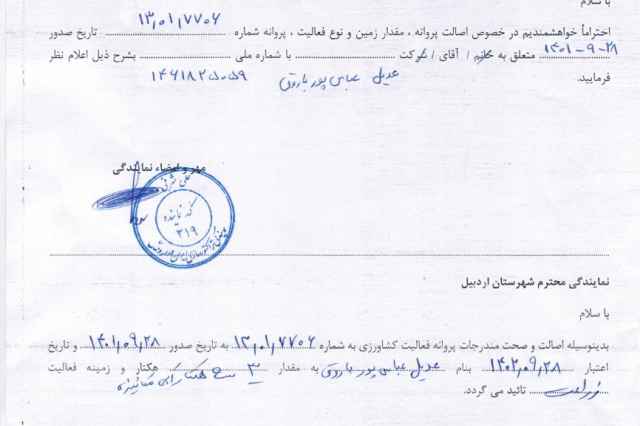 با سلام
احتراماً خواهشمندیم در خصوص اصالت پروانه ، مقدار زمین و نوع فعالیت ، پروانه شماره ۱۳,۰۱,۷۷۰۶ تاریخ صدور
۱۴۰۱-۹-۲۸ متعلق به خانم / آقای / شرکت عدیل عباس پور باروق با شماره ملی ۱۴۶۱۸۲۵۰۵۹ بشرح ذیل اعلام نظر
فرمایید.
مهر و امضاء نمایندگی
علی شرفی
کد نماینده
۳۱۹
نمایندگی محترم شهرستان اردبیل
با سلام
بدینوسیله اصالت و صحت مندرجات پروانه فعالیت کشاورزی به شماره ۱۳,۰۱,۷۷۰۶ به تاریخ صدور ۱۴۰۱,۰۹,۲۸ و تاریخ
اعتبار ۱۴۰۲,۰۹,۲۸ بنام عدیل عباس پور باروق به مقدار ۳ سه هکتار هکتار و زمینه فعالیت
زراعت تائید می گردد.